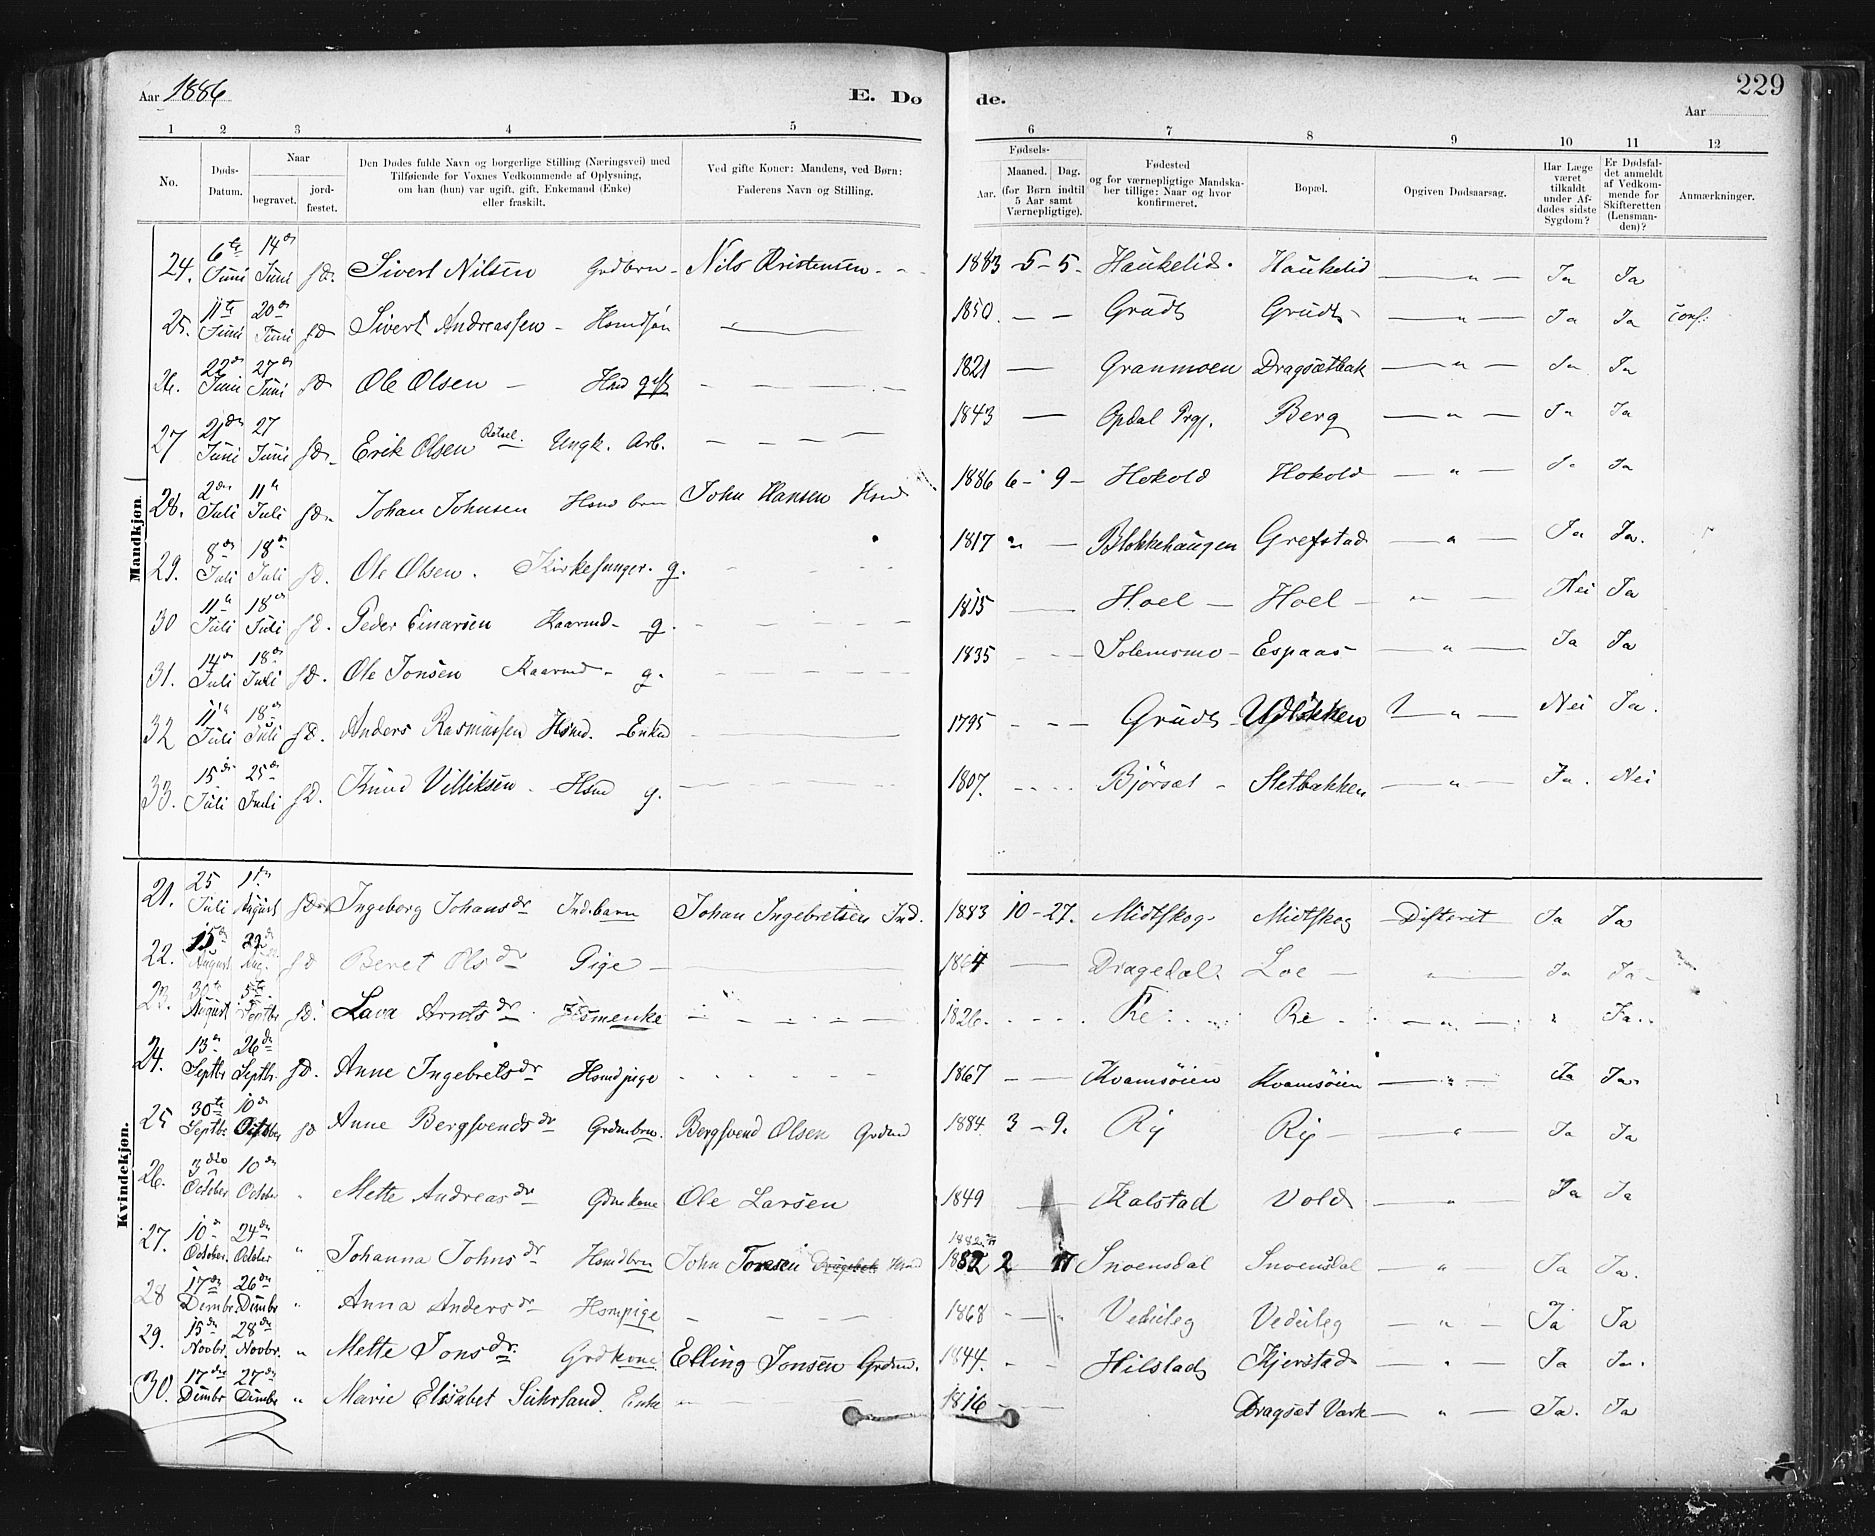 Aar 1886 E. Dø de. 229
Aar
1 2 3 4 5 6 7 8 9 10 11 12
No. Døds-Datum. Naar begravet. jordfæstet. Den Dødes fulde Navn og borgerlige Stilling (Næringsvei) med Tilføiende for Voxnes Vedkommende af Oplysning, om han (hun) var ugift, gift, Enkemand (Enke) eller fraskilt. Ved gifte Koner: Mandens, ved Børn: Faderens Navn og Stilling. Fødsels- Aar. Maaned. Dag. (for Børn indtil 5 Aar samt Værnepligtige). Fødested og for værnepligtige Mandskaber tillige: Naar og hvor konfirmeret. Bopæl. Opgiven Dødsaarsag. Har Læge været tilkaldt under Afdødes sidste Sygdom? Er Dødsfaldet anmeldt af Vedkommende for Skifteretten (Lensmanden)? Anmærkninger.
Mandkjøn.
24. 6te Juni 14de Juni Sivert Nilsen Grdbrn Nils Kristensen 1883 5 - 5 Haukelid Haukelid — " — Ja Ja
25. 11te Juni 20de Juni Sivert Andreassen - Hsmdsøn — 1850 — — Gruds Gruds — " — Ja Ja conf:
26. 22de Juni 27de Juni Ole Olsen — Hsmd gift — 1821 — Granmoen Dragsætbak — " — Ja Ja
27 21de Juni 27 Juni Erik Olsen Ungk. Arb. — 1843 — Opdal Prgj. Berg — " — Ja Ja
28. 2den Juli 11te Juli Johan Johnsen Hsmd brn John Hansen Hsmd 1886 6 - 9 - Hokold Hokold — " — Ja Ja
29. 8de Juli 18de Juli Ole Olsen. Kirkesanger. g. — 1817 " — Blokkehaugen Grefstad — " — Ja Ja.
30 11te Juli 18de Juli Peder Einarsen Kaarmd - g. — 1815 — Hoel — Hoel — " — Nei Ja
31. 14de Juli 18de Juli Ole Jonsen Kaarmd - g. — 1835 — Solemsmo - Espaas — " — Ja Ja
32 11te Juli 18de Juli Anders Rasmussen Hsmd. Enkm — 1795 — Gruds Udløkken — " — Nei Ja.
33. 15de Juli 25de Juli Knud Villiksen - Hsmd g. — 1807. — Bjørsæt - Sletbakken — " — Ja. Nei
Kvindekjøn.
21. 25 Juli 1ste August Ingeborg Johansdr Ind.barn Johan Ingebretsen Ind. 1883 10 - 27. Midtskog. Midtskog Difterit Ja Ja
22. 15de August 22de Aug. Beret Olsdr Pige — 1864 — Dragedal Loe — " — Ja Ja
23. 30te August 5te Septbr Lava Arntsdr Hsmenke — 1826. — Re Re — " — " Ja.
24. 13de Septbr 26de Septbr. Anne Ingebretsdr Hsmdpige — 1867 — — Kvamsøien Kvamsøien — " — Ja Ja.
25 30te Septbr 10de Octobr Anne Bergsvendsdr Grdmbrn. Bergsvend Olsen Grdmd 1884 3 - 9. Rij Rij — " — Ja Ja
26. 3die October 10de October " Mette Andreasdr Gdmkone Ole Larsen 1849 — Kalstad Vold — " — Ja Ja
27. 10de October. 24de October " Johanna Johnsdr Hsmdbrn John Toresen Hsmd 1882 2 17 Snoensdal Snoensdal — " — Ja Ja.
28 17de Dcmbr. 26de Dcmbr " Anna Andersdr Hsmpige — 1868 — Vedeileg Vedeileg — " — Ja Ja
29. 15de Novbr. 28de Novbr. " Mette Jonsdr. Grdkone Elling Jonsen Grdmd. 1844. — Hilstad Kjerstad — " — Ja Ja.
30. 17de Dcmbr 27de Dcmbr " Marie Elisabet Suhrland. Enke — 1816 — Dragset Værk — " — Ja. Ja